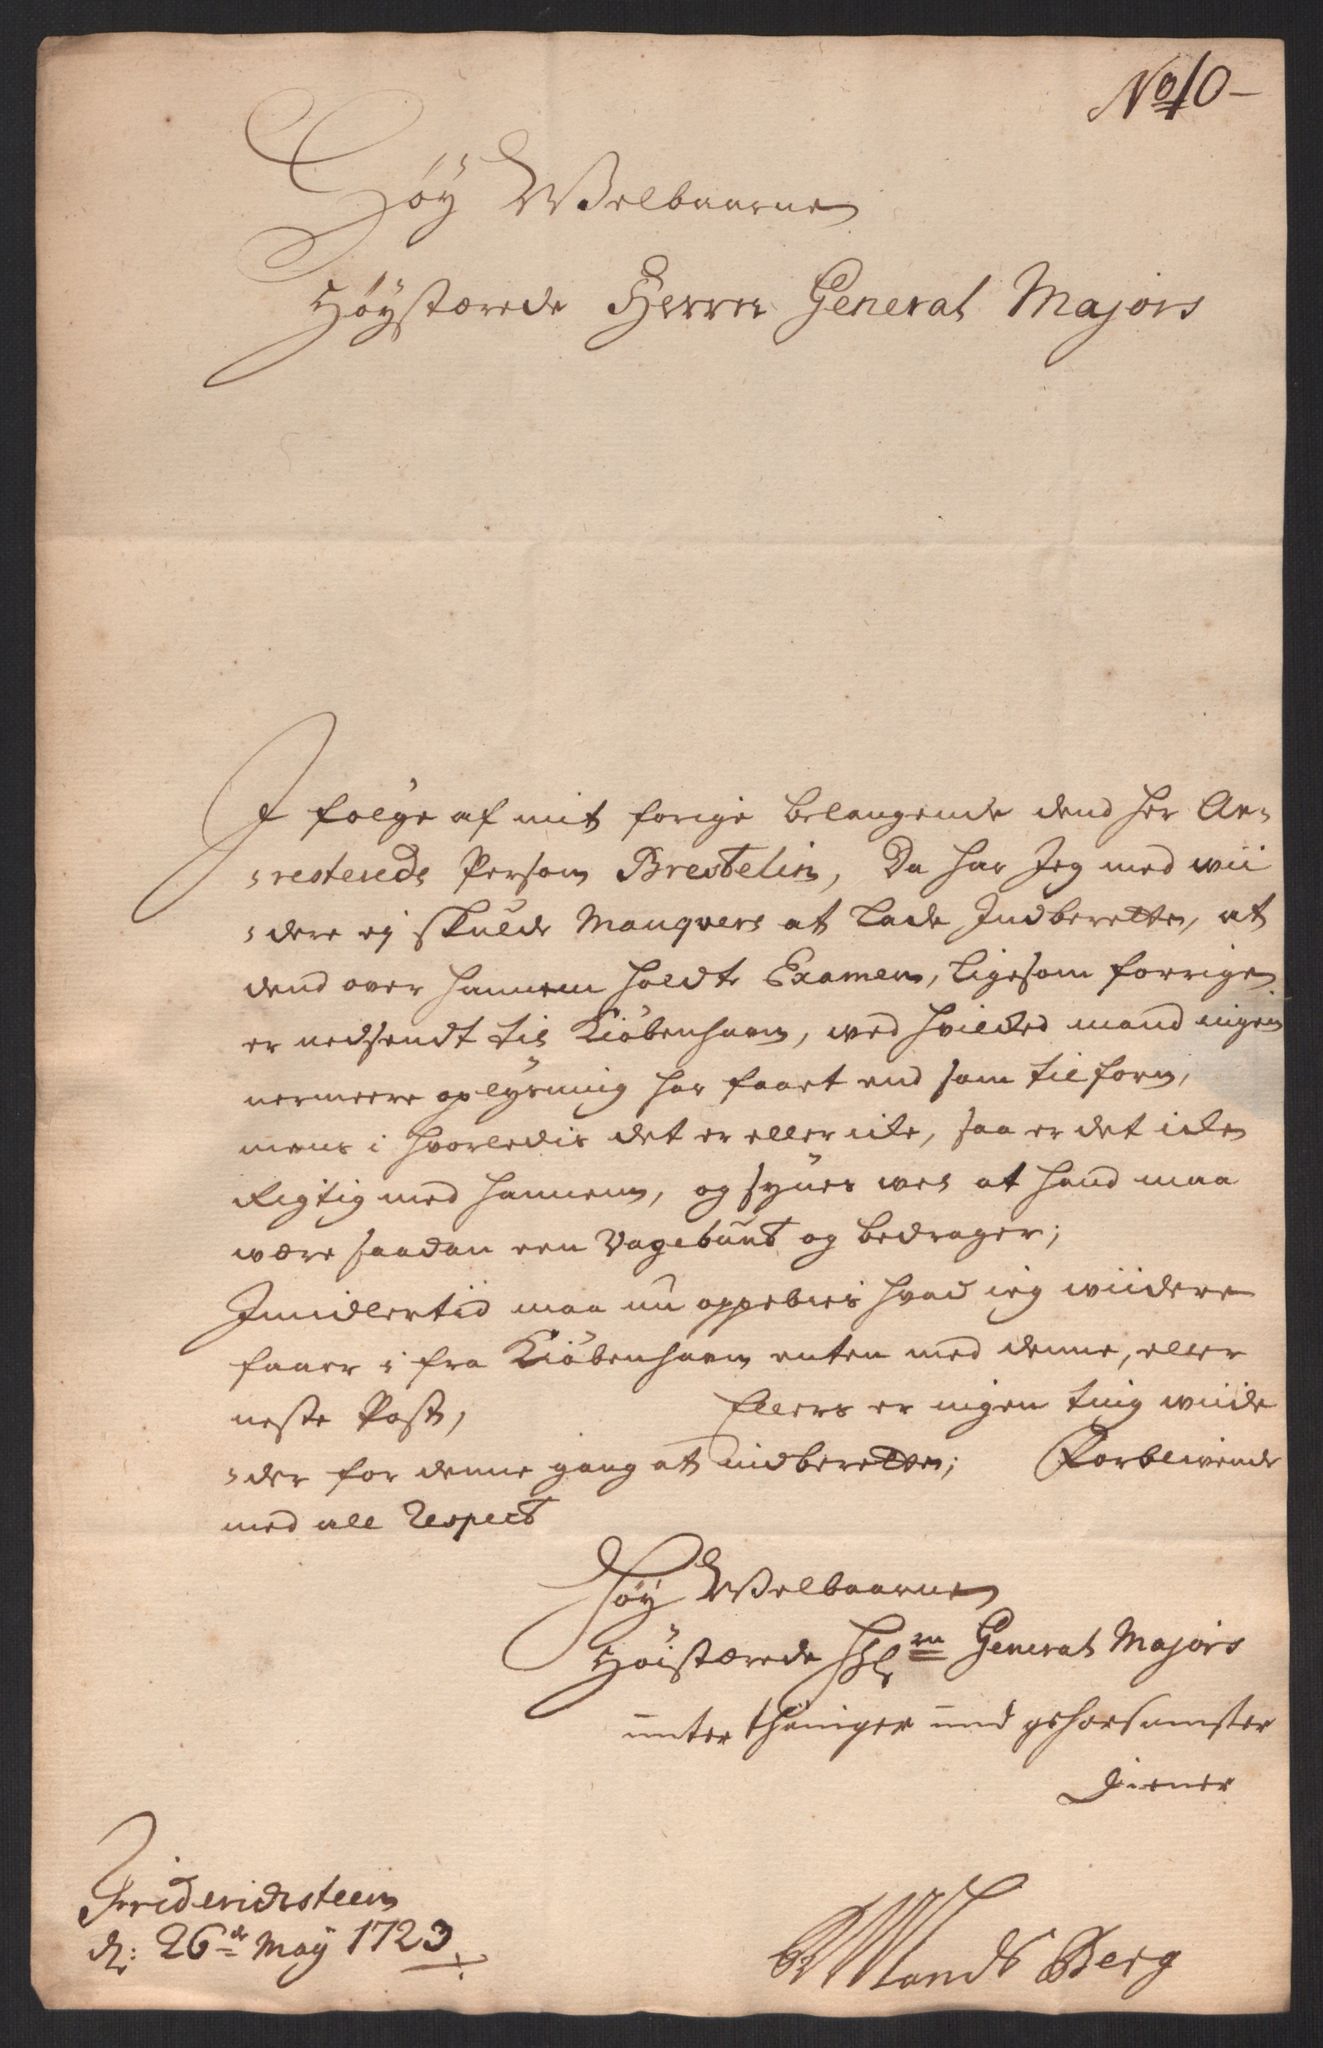 No 10
Høy Welbaarne
Høystærede Herrn General Majors
I følge af mit forige belangende dend her Ar¬
¬resterede Person Brestelin, Da har Jeg med wii
¬dere ej skulde Manqvere at lade Indberette, at
dend over hannem holdte Examen, ligesom forrige
er nedsendt til Kiöbenhavn, wed hvilcked mand ingen
nermeere oplysning har faaet end som tilforn,
mens i hvorledis det er eller icke, saa er det icke
Rigtig med hannem, og synes wel at hand maa
wære saadan een Vagebund og bedrager;
Imidlertid maa nu oppebies hvad ieg wiidere
faaer i fra Kiöbenhavn enten med denne, eller
neste Post, Ellers er ingen ting wiide
¬der for denne gang at indberette; Forblivende
med all Respect
Høy Welbaarne
Høistærede Hr General Majors
unterthäniger und gehorsamster
Diener
Friderichsteen
d: 26de May 1723
Lands Berg